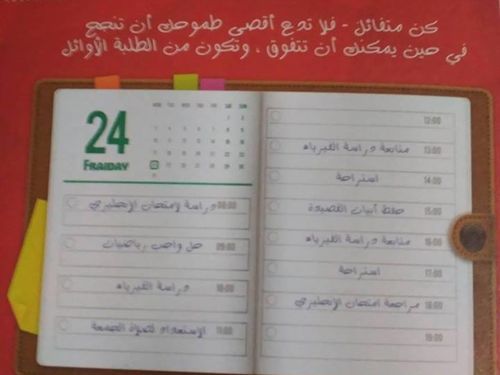 كن متفائل - فلا تدع أقصى طموحك أن تنجح
في حين يمكنك أن تتفوق ، وتكون من الطلبة الأوائل
24
FRAIDAY
MON TUE WED THU FRI SAT SUN
08:00 دراسة لامتحان الإنجليزي
09:00 حل واجب رياضيات
10:00 دراسة الفيزياء
11:00 الإستعداد لصلاة الجمعة
12:00
13:00 متابعة دراسة الفيزياء
14:00 استراحة
15:00 حفظ أبيات القصيدة
16:00 متابعة دراسة الفيزياء
17:00 استراحة
18:00 مراجعة امتحان الإنجليزي
19:00